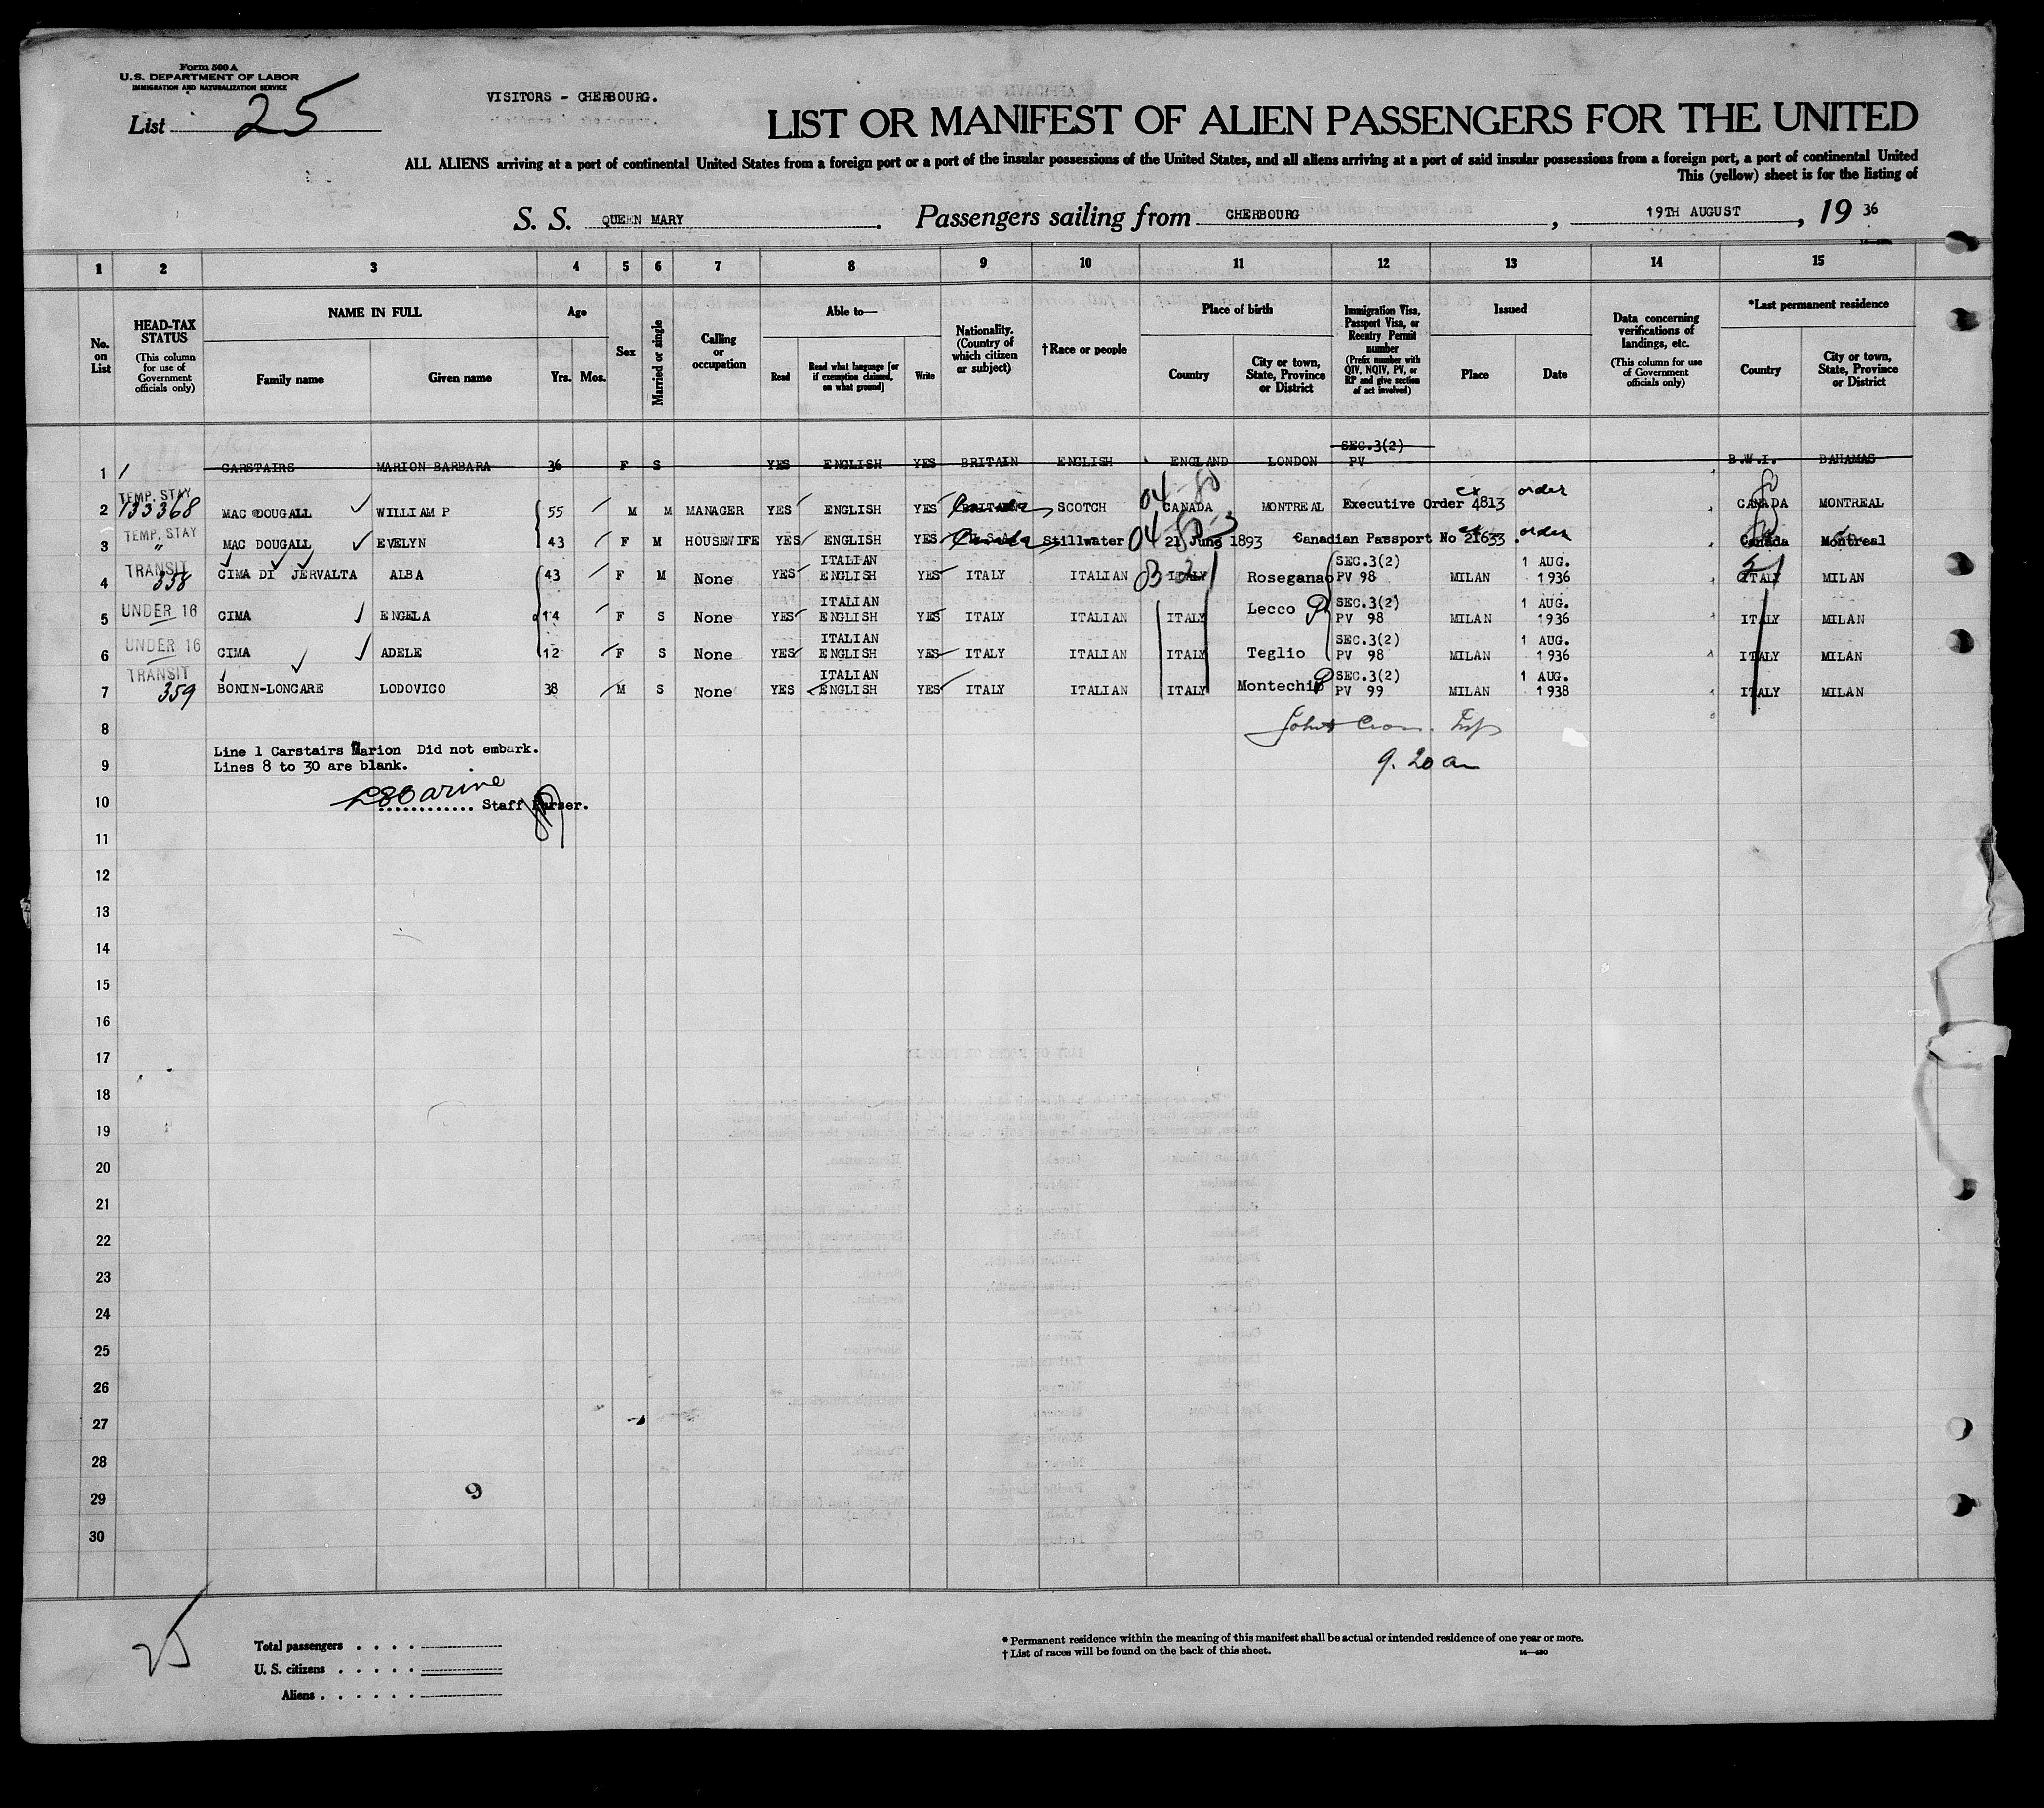 Form 500 A
U.S. DEPARTMENT OF LABOR
IMMIGRATION AND NATURALIZATION SERVICE
List 25
VISITORS - CHERBOURG.
LIST OR MANIFEST OF ALIEN PASSENGERS FOR THE UNITED
ALL ALIENS arriving at a port of continental United States from a foreign port or a port of the insular possessions of the United States, and all aliens arriving at a port of said insular possessions from a foreign port, a port of continental United
This (yellow) sheet is for the listing of
S. S. QUEEN MARY. Passengers sailing from CHERBOURG, 19TH AUGUST, 19 36
1 2 3 4 5 6 7 8 9 10 11 12 13 14 15
No. on List
HEAD-TAX STATUS (This column for use of Government officials only)
NAME IN FULL
Family name
Given name
Age
Yrs. Mos.
Sex
Married or single
Calling or occupation
Able to—
Read
Read what language [or if exemption claimed, on what ground]
Write
Nationality. (Country of which citizen or subject)
†Race or people
Place of birth
Country
City or town, State, Province or District
Immigration Visa, Passport Visa, or Reentry Permit number (Prefix number with QIV, NQIV, PV, or RP and give section of act involved)
Issued
Place
Date
Data concerning verifications of landings, etc. (This column for use of Government officials only)
*Last permanent residence
Country
City or town, State, Province or District
1 CARSTAIRS MARION BARBARA 36 F S YES ENGLISH YES BRITAIN ENGLISH ENGLAND LONDON SEC.3(2) PV B.W.I. BAHAMAS
2 TEMP. STAY 133368 MAC DOUGALL WILLIAM P 55 M M MANAGER YES ENGLISH YES BRITAIN Canada SCOTCH 04 80 CANADA MONTREAL Executive Order 4813 ex order 80 CANADA MONTREAL
3 TEMP. STAY " MAC DOUGALL EVELYN 43 F M HOUSEWIFE YES ENGLISH YES U.S.A. Canada Stillwater 04 80 21 June 1893 Canadian Passport No 21633. ex order Canada Montreal
4 TRANSIT 358 CIMA DI JERVALTA ALBA 43 F M None YES ITALIAN ENGLISH YES ITALY ITALIAN ITALY Rosegana SEC.3(2) PV 98 MILAN 1 AUG. 1936 ITALY MILAN
5 UNDER 16 CIMA ENGELA 14 F S None YES ITALIAN ENGLISH YES ITALY ITALIAN ITALY Lecco SEC.3(2) PV 98 MILAN 1 AUG. 1936 ITALY MILAN
6 UNDER 16 CIMA ADELE 12 F S None YES ITALIAN ENGLISH YES ITALY ITALIAN ITALY Teglio SEC.3(2) PV 98 MILAN 1 AUG. 1936 ITALY MILAN
7 TRANSIT 359 BONIN-LONGARE LODOVICO 38 M S None YES ITALIAN ENGLISH YES ITALY ITALIAN ITALY Montechio SEC.3(2) PV 99 MILAN 1 AUG. 1938 ITALY MILAN
8
Line 1 Carstairs Marion Did not embark.
9 Lines 8 to 30 are blank.
9. 20 am
10 Staff Purser.
11
12
13
14
15
16
17
18
19
20
21
22
23
24
25
26
27
28
29
9
30
25
Total passengers . . . .
U. S. citizens . . . . .
Aliens . . . . . .
* Permanent residence within the meaning of this manifest shall be actual or intended residence of one year or more.
† List of races will be found on the back of this sheet.
14—430